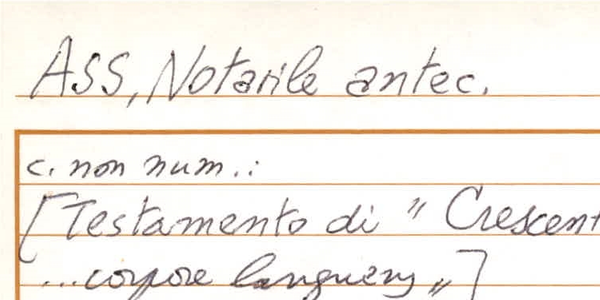 ASS, Notarile antec.
c. non num.:
[Testamento di " Crescent
...corpore languens "]